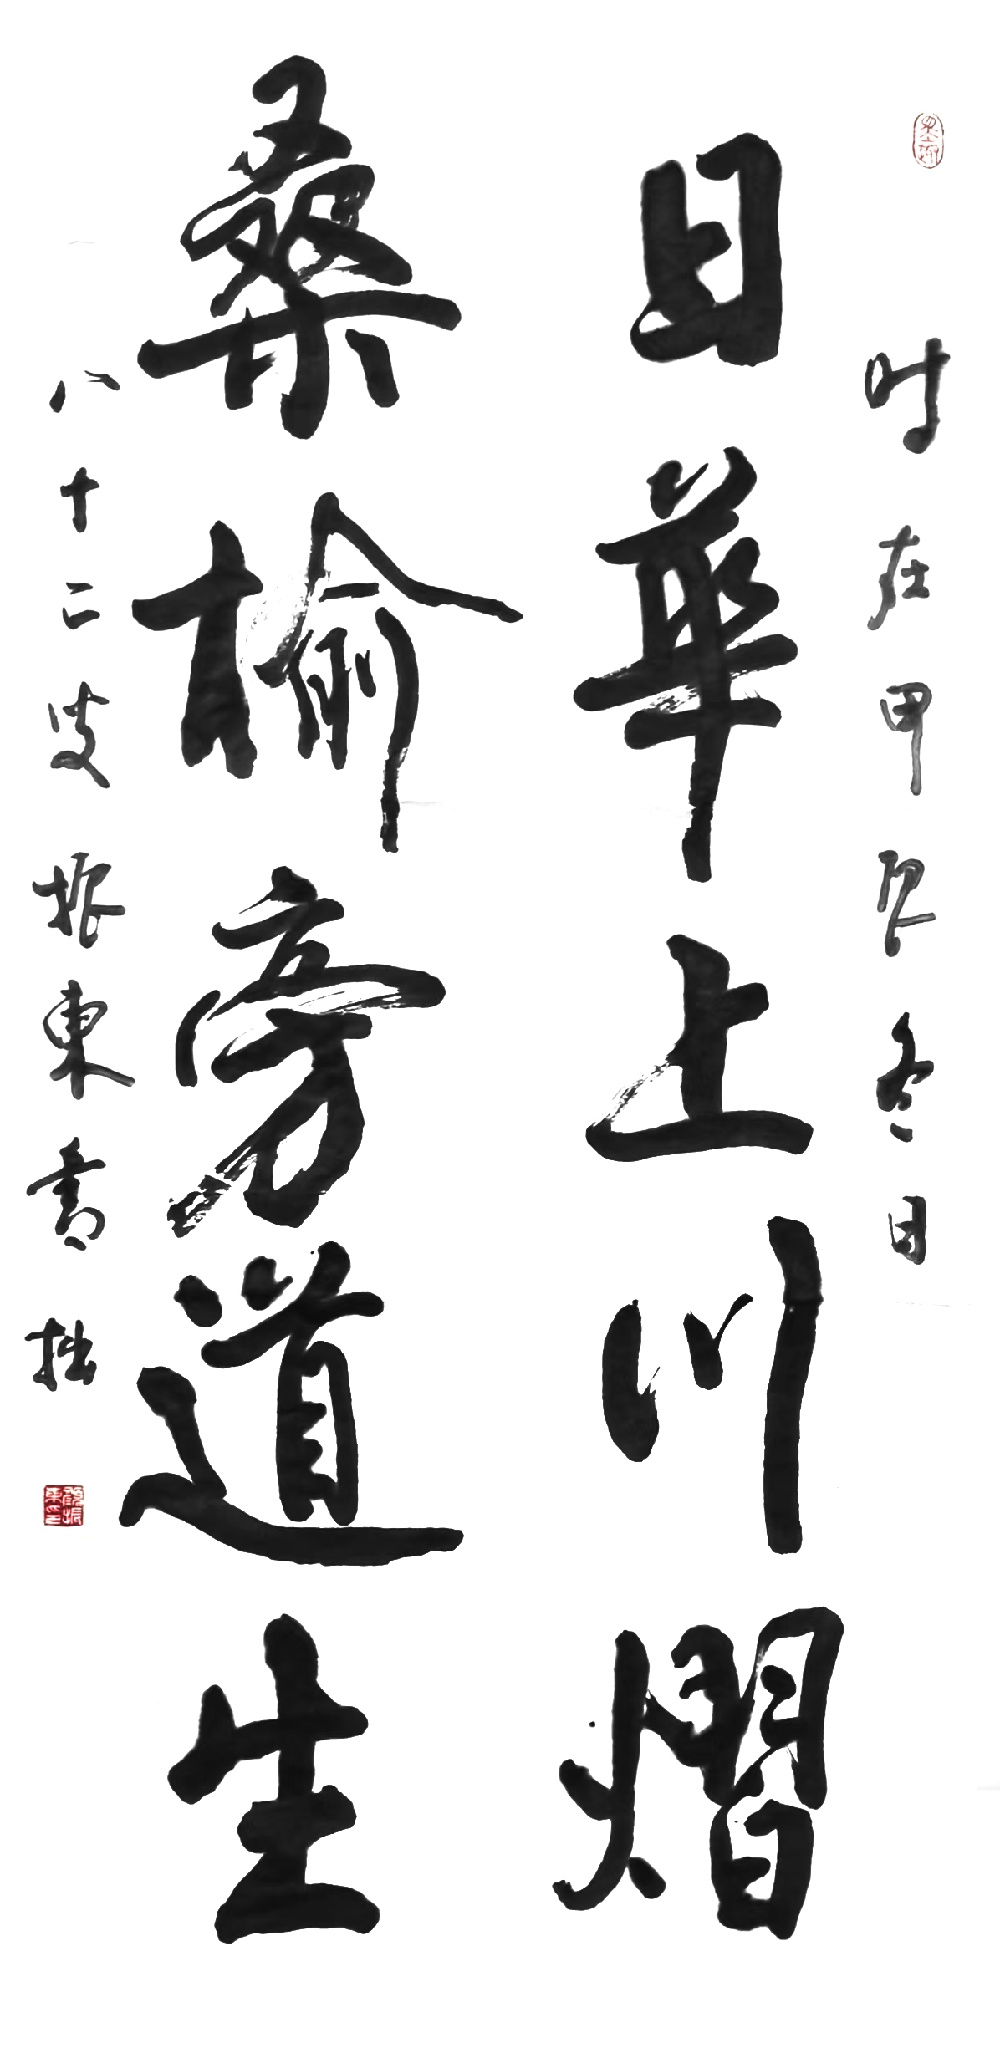 时在甲辰冬日
日華上川熠
桑榆旁道生
八十二叟振東書拙